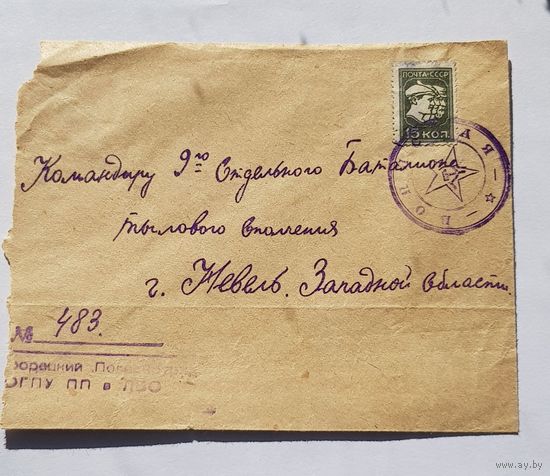 ПОЧТА·СССР
15 КОП.
Командиру 9го Отдельного Баталиона
тылового ополчения
г. Невель. Западной области.
№ 483.
ОГПУ ПП в ЛВО
www.ay.by